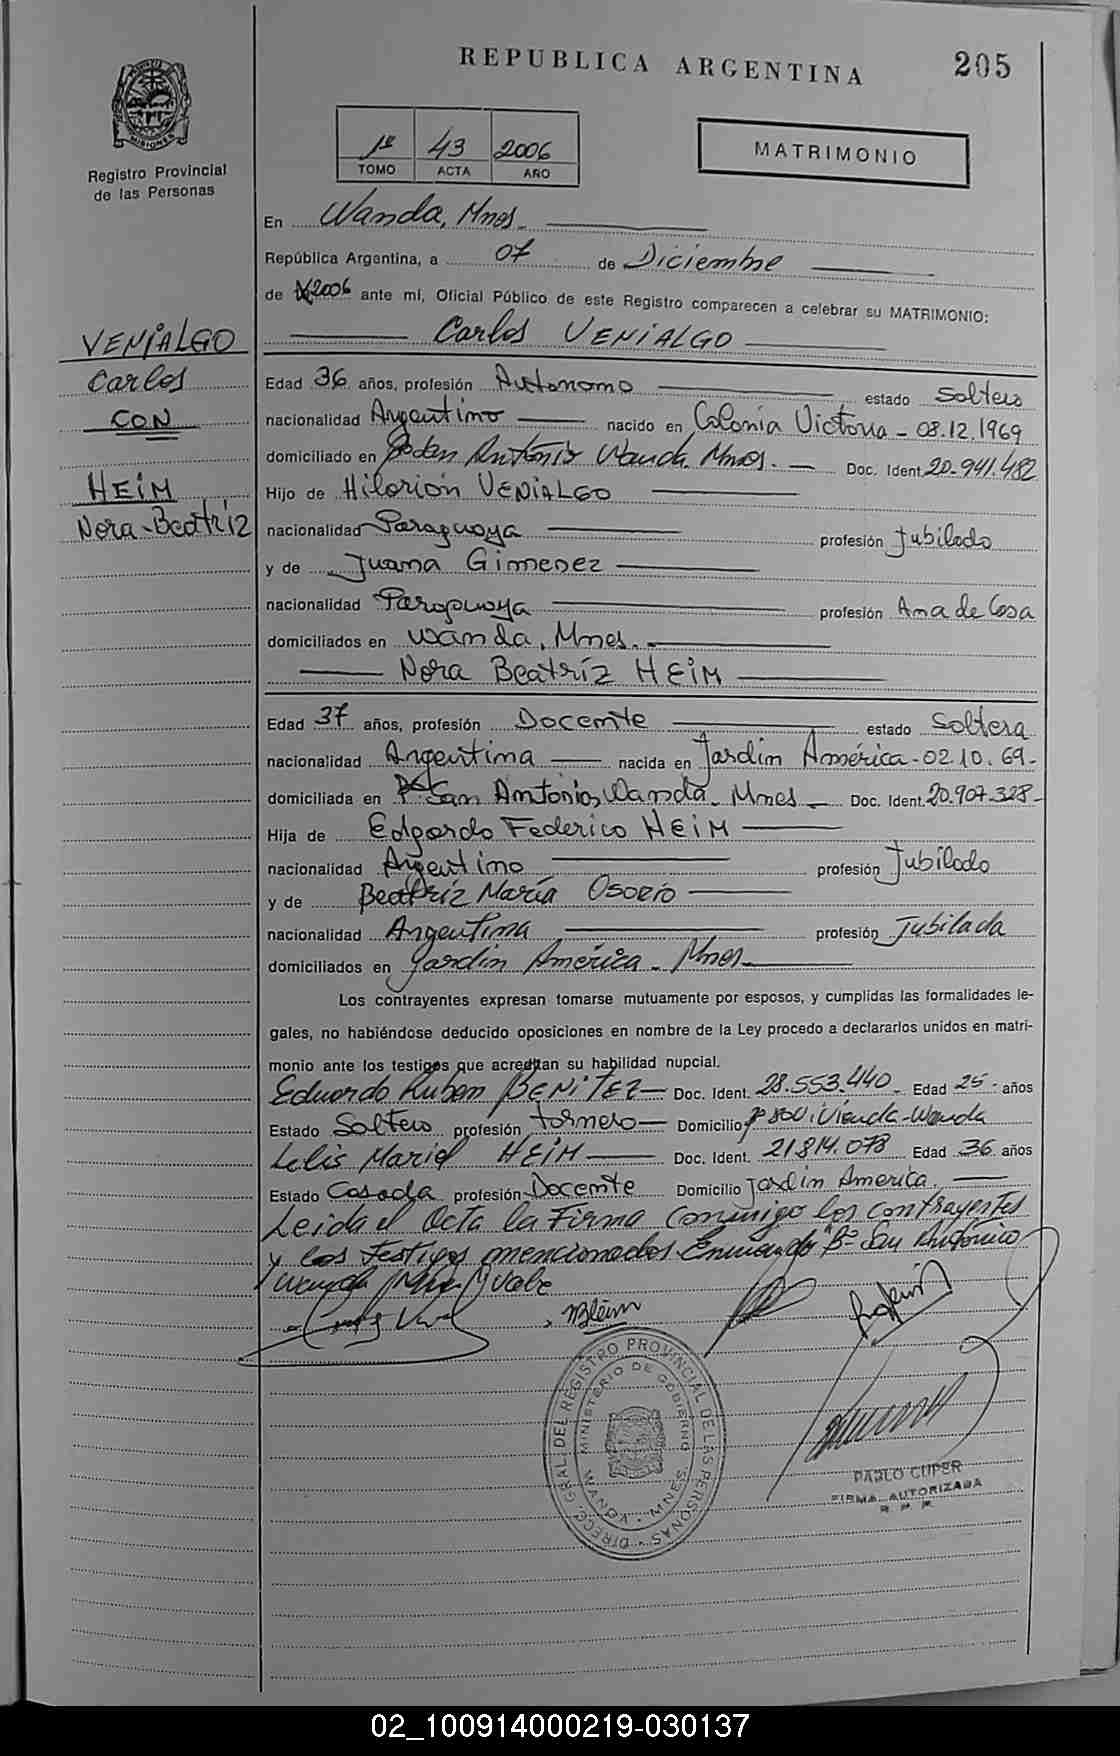 REPUBLICA ARGENTINA
205
MISIONES
Registro Provincial
de las Personas
1º 43 2006
TOMO ACTA AÑO
MATRIMONIO
VENIALGO
Carlos
CON
HEIM
Nora-Beatríz
En Wanda, Mnes.
República Argentina, a 07 de Diciembre
de 2006 ante mí, Oficial Público de este Registro comparecen a celebrar su MATRIMONIO:
Carlos VENIALGO
Edad 36 años, profesión Autonomo estado Soltero
nacionalidad Argentino nacido en Colonia Victoria - 08.12.1969
domiciliado en Antonio Wanda, Mnes. Doc. Ident. 20.941.482
Hijo de Hilarión VENIALGO
nacionalidad Paraguaya profesión Jubilado
y de Juana Gimenez
nacionalidad Paraguaya profesión Ama de Casa
domiciliados en Wanda, Mnes.
Nora Beatríz HEIM
Edad 37 años, profesión Docente estado Soltera
nacionalidad Argentina nacida en Jardín América - 02.10.69-
domiciliada en San Antonio, Wanda. Mnes Doc. Ident. 20.907.328-
Hija de Edgardo Federico HEIM
nacionalidad Argentino profesión Jubilado
y de Beatríz María Osorio
nacionalidad Argentina profesión Jubilada
domiciliados en Jardín América. Mnes.
Los contrayentes expresan tomarse mutuamente por esposos, y cumplidas las formalidades le-
gales, no habiéndose deducido oposiciones en nombre de la Ley procedo a declararlos unidos en matri-
monio ante los testigos que acreditan su habilidad nupcial.
Eduardo Ruben BENITEZ Doc. Ident. 28.553.440. Edad 25 años
Estado Soltero profesión tornero Domicilio Bº 800 Vivienda-Wanda
Lelis Mariel HEIM Doc. Ident. 21.814.078 Edad 36 años
Estado Casada profesión Docente Domicilio Jardín America.
Leida el Acta la Firma Conmigo los Contrayentes
y los testigos mencionados. Enmiendo "Bº San Antonio
Wanda Mnes" Vale
NBHeim
DIRECC. GRAL. DEL REGISTRO PROVINCIAL DE LAS PERSONAS
MINISTERIO DE GOBIERNO
WANDA - MNES.
PABLO CUPER
FIRMA AUTORIZADA
R. P. P.
02_100914000219-030137